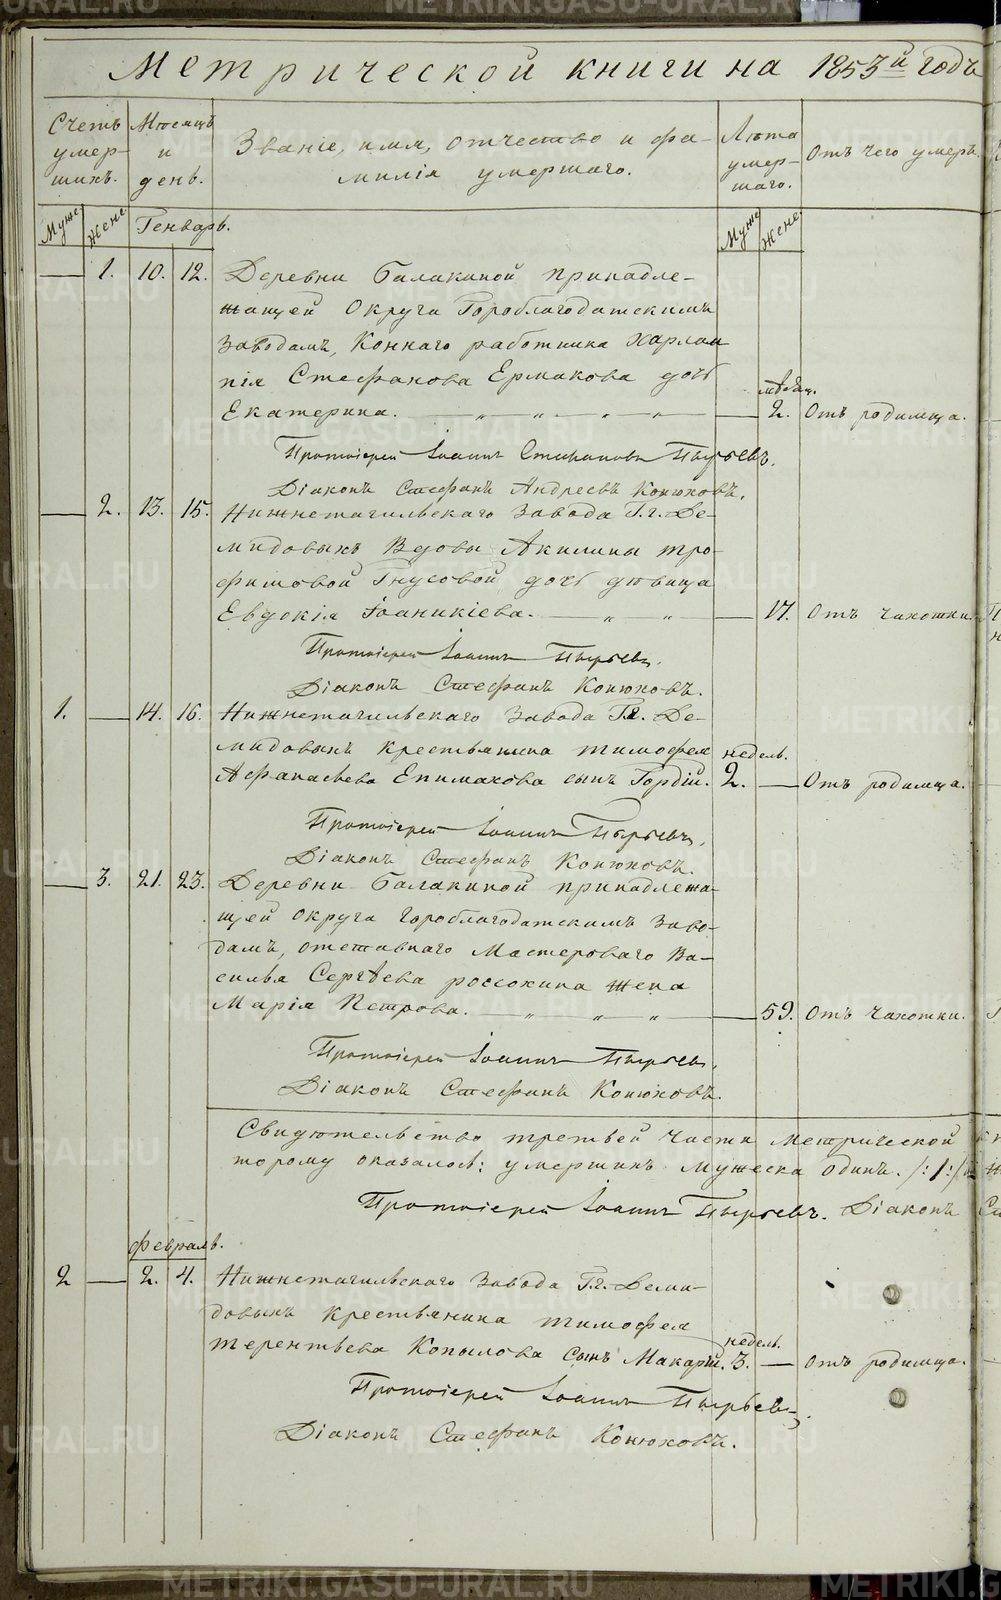 Метрической книги на 1853й годъ
Счетъ умер-шихъ.
Мѣсяцъ и день.
Званіе, имя, отчество и фа-
милія умершаго.
Лѣта умер-шаго.
Отъ чего умеръ.
Муже Жене
Генварь.
Муже Жене
1. 10. 12. Деревни Балакиной принадле-
жащей округа Гороблагодатскимъ
заводамъ, Коннаго работника Харлам
пія Стефанова Ермакова дочь
мѣсяц.
Екатерина. 2. Отъ родимца.
Протоіерей Іоаннъ Стиханова Пырьевъ.
Діаконъ Стефанъ Андреевъ Конюховъ.
2. 13. 15. Нижнетагильскаго завода Г.г. Де-
мидовыхъ Вдовы Акилины тро-
фимовой Гнусовой дочь дѣвица
Евдокія Іоаникіева. 17. Отъ чахотки.
Протоіерей Іоаннъ Пырьевъ.
Діаконъ Стефанъ Конюховъ.
1. 14. 16. Нижнетагильскаго завода Г.г. Де-
мидовыхъ крестьянина тимофея
недель.
Афанасьева Епимахова сынъ Гордій. 2. Отъ родимца.
Протоіерей Іоаннъ Пырьевъ.
Діаконъ Стефанъ Конюховъ.
3. 21. 23. Деревни Балакиной принадлежа-
щей округа Гороблагодатскимъ заво-
дамъ, отставнаго Мастероваго Ва-
силья Сергѣева россохина жена
Марія Петрова. 59. Отъ чахотки.
Протоіерей Іоаннъ Пырьевъ.
Діаконъ Стефанъ Конюховъ.
Свидѣтельство третьей части Метрической
торому оказалось: умершихъ мужеска одинъ. /:1:/
Протоіерей Іоаннъ Пырьевъ. Діаконъ
февраль.
2 2. 4. Нижнетагильскаго завода Г.г. Деми-
довыхъ крестьянина тимофея
недель.
терентьева Копылова сынъ Макарій. 3. Отъ родимца.
Протоіерей Іоаннъ Пырьевъ.
Діаконъ Стефанъ Конюховъ.
METRIKI.GASO-URAL.RU